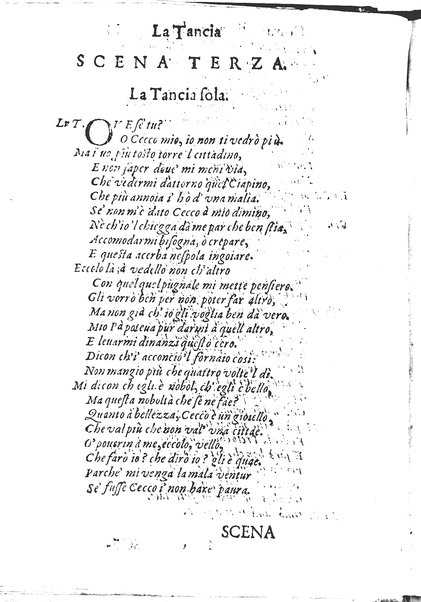 La Tancia
SCENA TERZA.
La Tancia sola.
La T. OV E se' tu?
O Cecco mio, io non ti vedrò più.
Ma i vo più tosto torre 'l cittadino,
E non saper doue' mi meni via,
Che vedermi d'attorno quel Ciapino,
Che più annoia i' hò d' vna malia.
Se' non m'è dato Cecco à mio dimino,
Nè ch'io 'l chiegga dà me par che ben stia,
Accomodarmi bisogna, ò crepare,
E questa acerba nespola ingoiare.
Eccolo là, à vedello non ch'altro
Con quel quel pugnale mi mette pensero.
Gli vorrò ben per non poter far altro,
Ma non già ch'io gli voglia ben dà vero.
Mio Pà poteua pur darmi à quell' altro,
E leuarmi dinanzi questo cero.
Dicon ch'i' acconciò l fornaio così:
Non mangio più che quattro volte 'l dì.
Mi dicon ch egli è nobol, ch' egli è bello,
Ma questa noboltà che sè ne fae?
Quanto à bellezza, Cecco è un gioiello,
Che val più che non val' vna cittàe.
O' pouerin à me, eccolo, vello,
Che farò io? che dirò io? gli è quae.
Parche' mi venga la mala ventur
Se' fusse Cecco i' non hare' paura.
SCENA